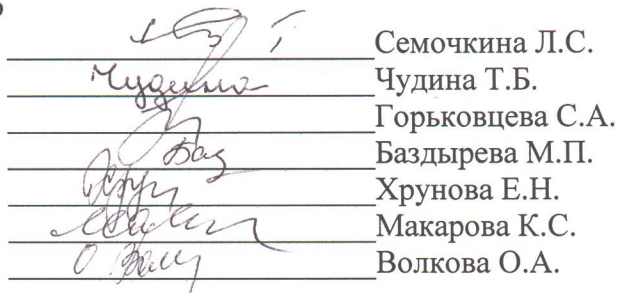 Семочкина Л.С.
Чудина Чудина Т.Б.
Горьковцева С.А.
Баз Баздырева М.П.
Хрунова Е.Н.
Макарова К.С.
Волкова О.А.